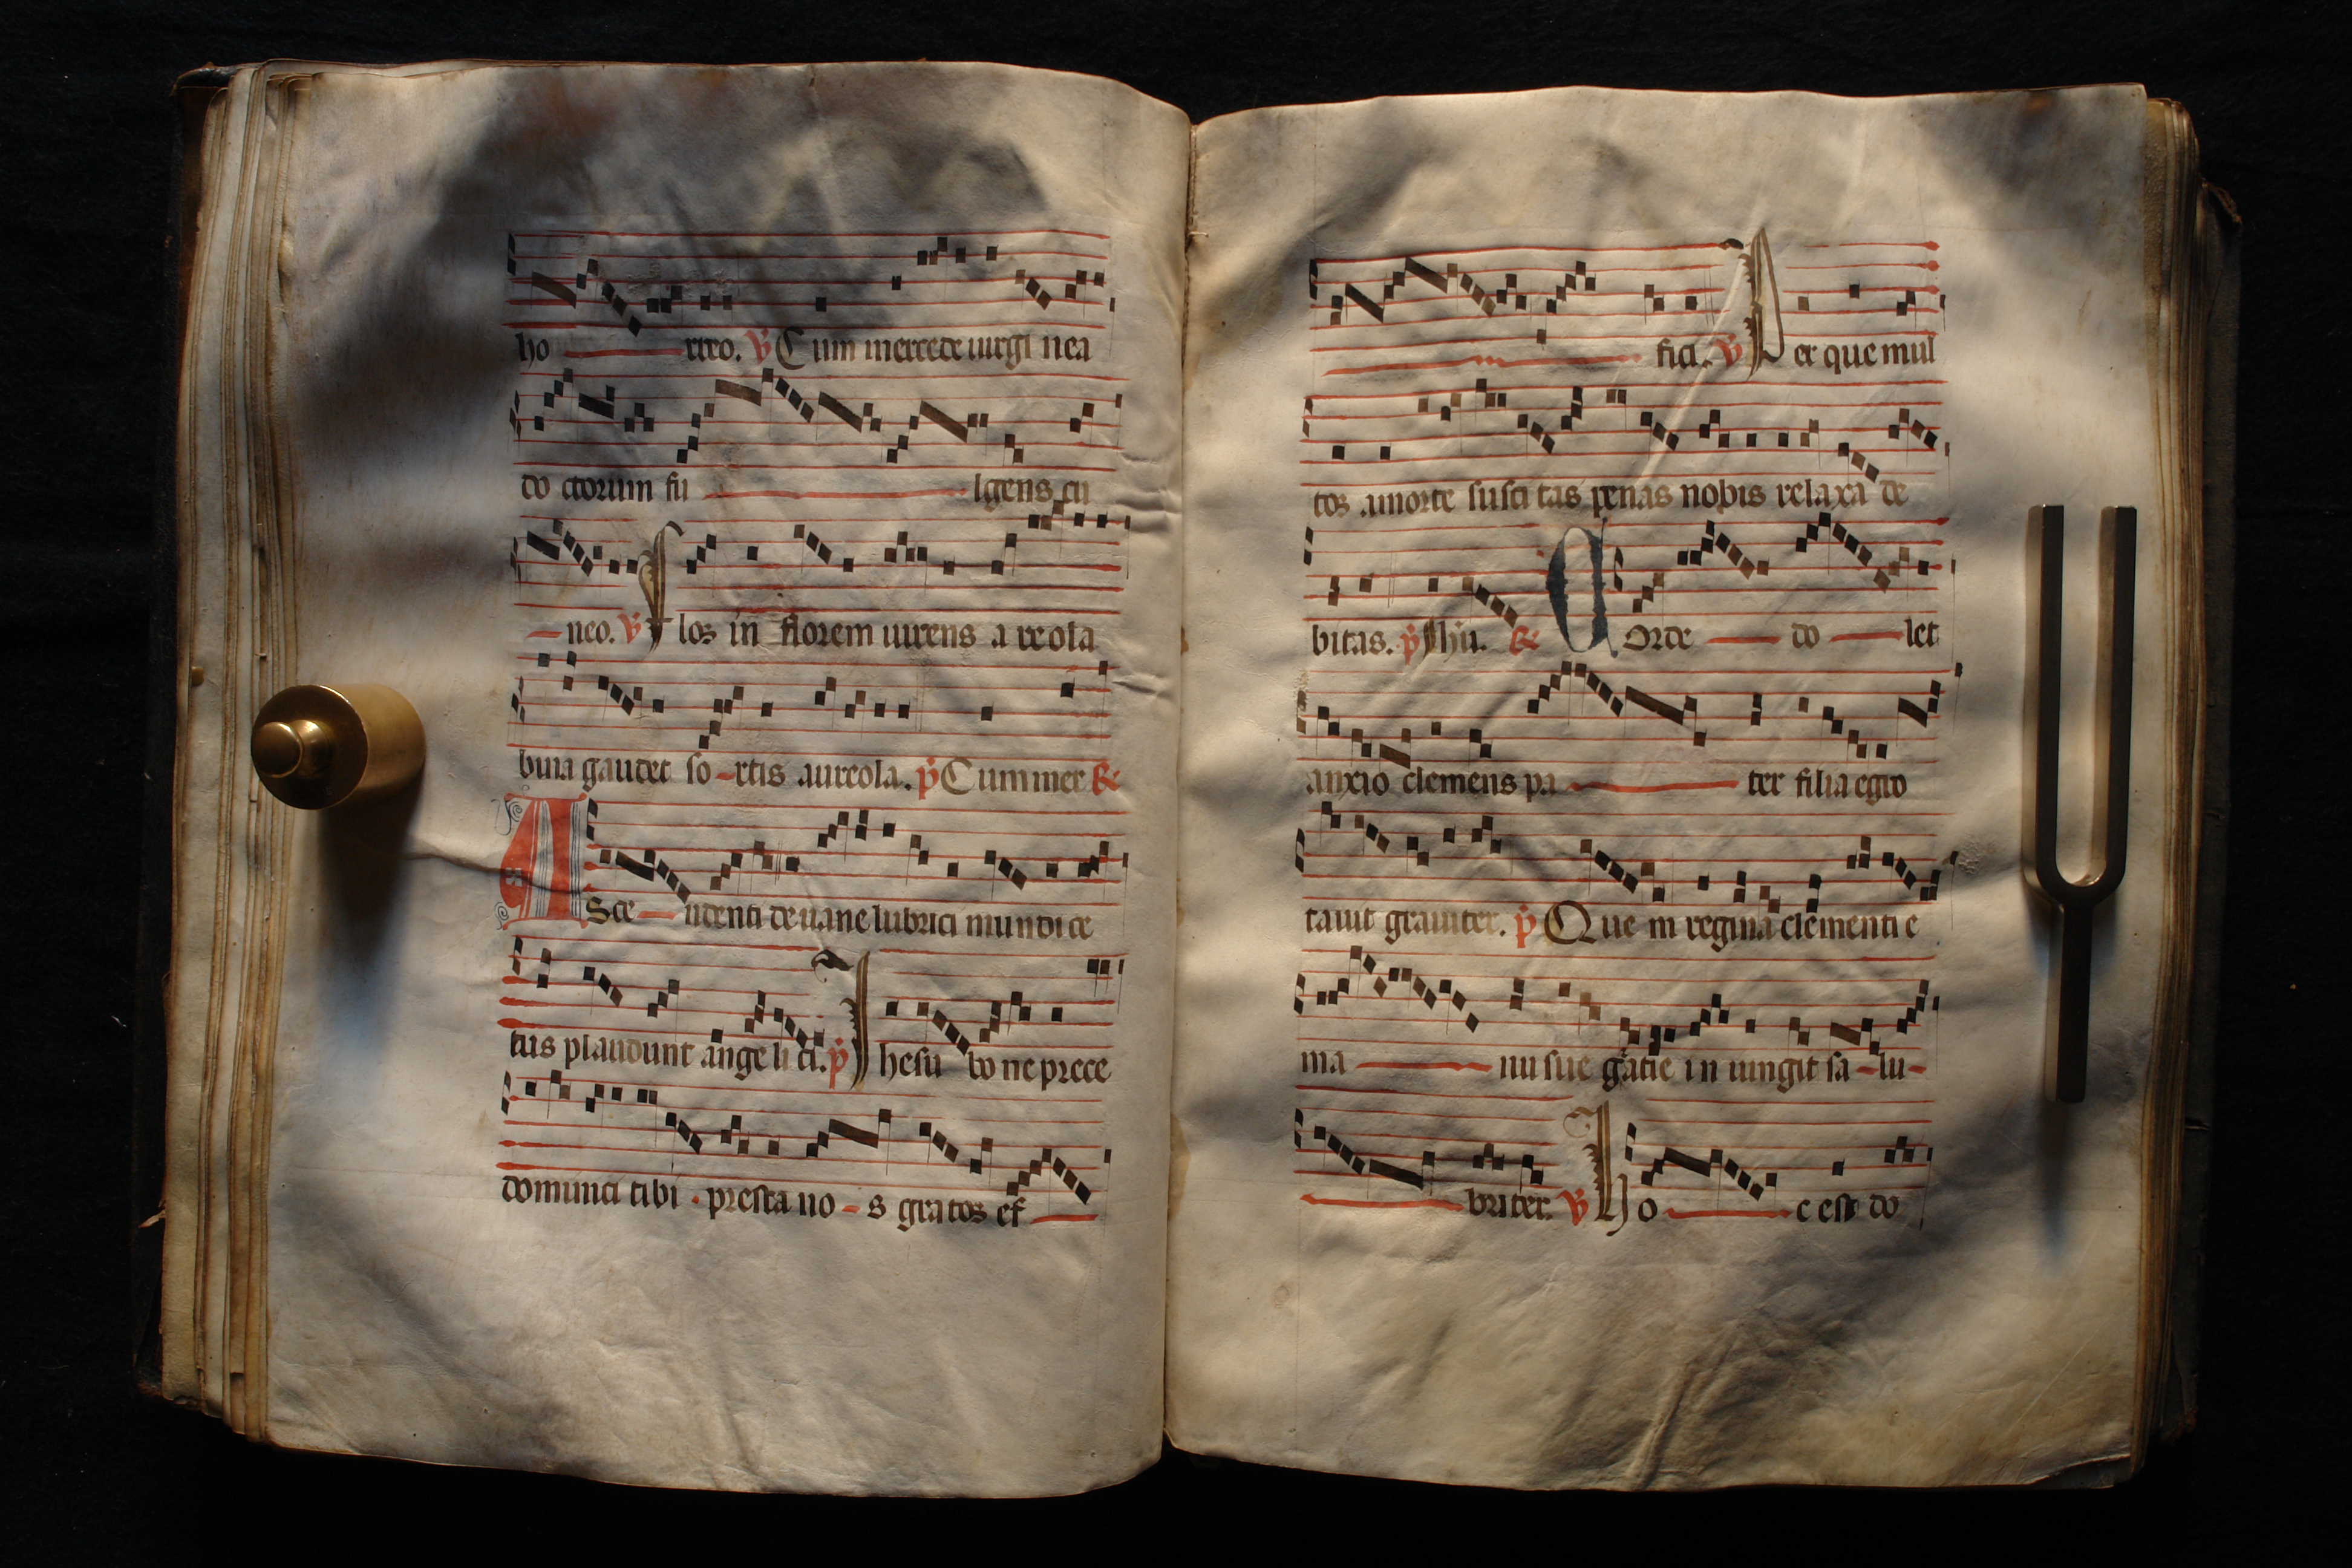 ho rteo. V Cum mercede uirgi nea
do ctorum fu lgens cu
neo. V Flos in florem uirens a reola
buia gaudet so rtis aureola. p Cum mer R
ASce ndenti de uane lubrici mundi ce
tus plaudunt ange li ci. p Ihesu bo ne prece
domunici tibi . presta no s gratos ef
fici. V Per que mul
tos amorte susci tas penas nobis relaxa de
bitas. p Ihu. R Corde do let
anxio clemens pa ter filia egro
tauit grauiter. p Que m regina clementi e
ma nu sue gratie in iungit sa lu
briter. V Ho c est do